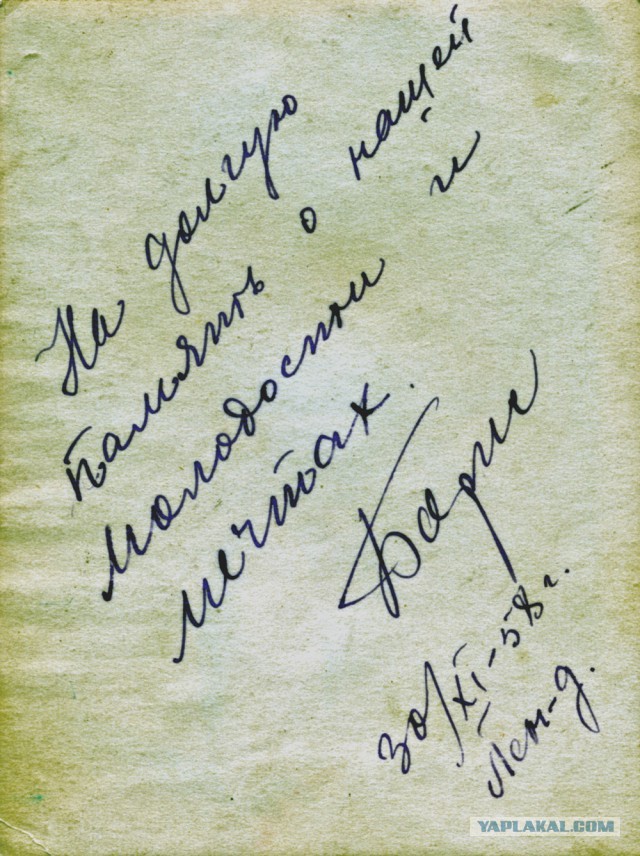 На долгую
память о нашей
молодости и
мечтах.
Барис
30/XI-58 г.
Лен-д.
YAPLAKAL.COM